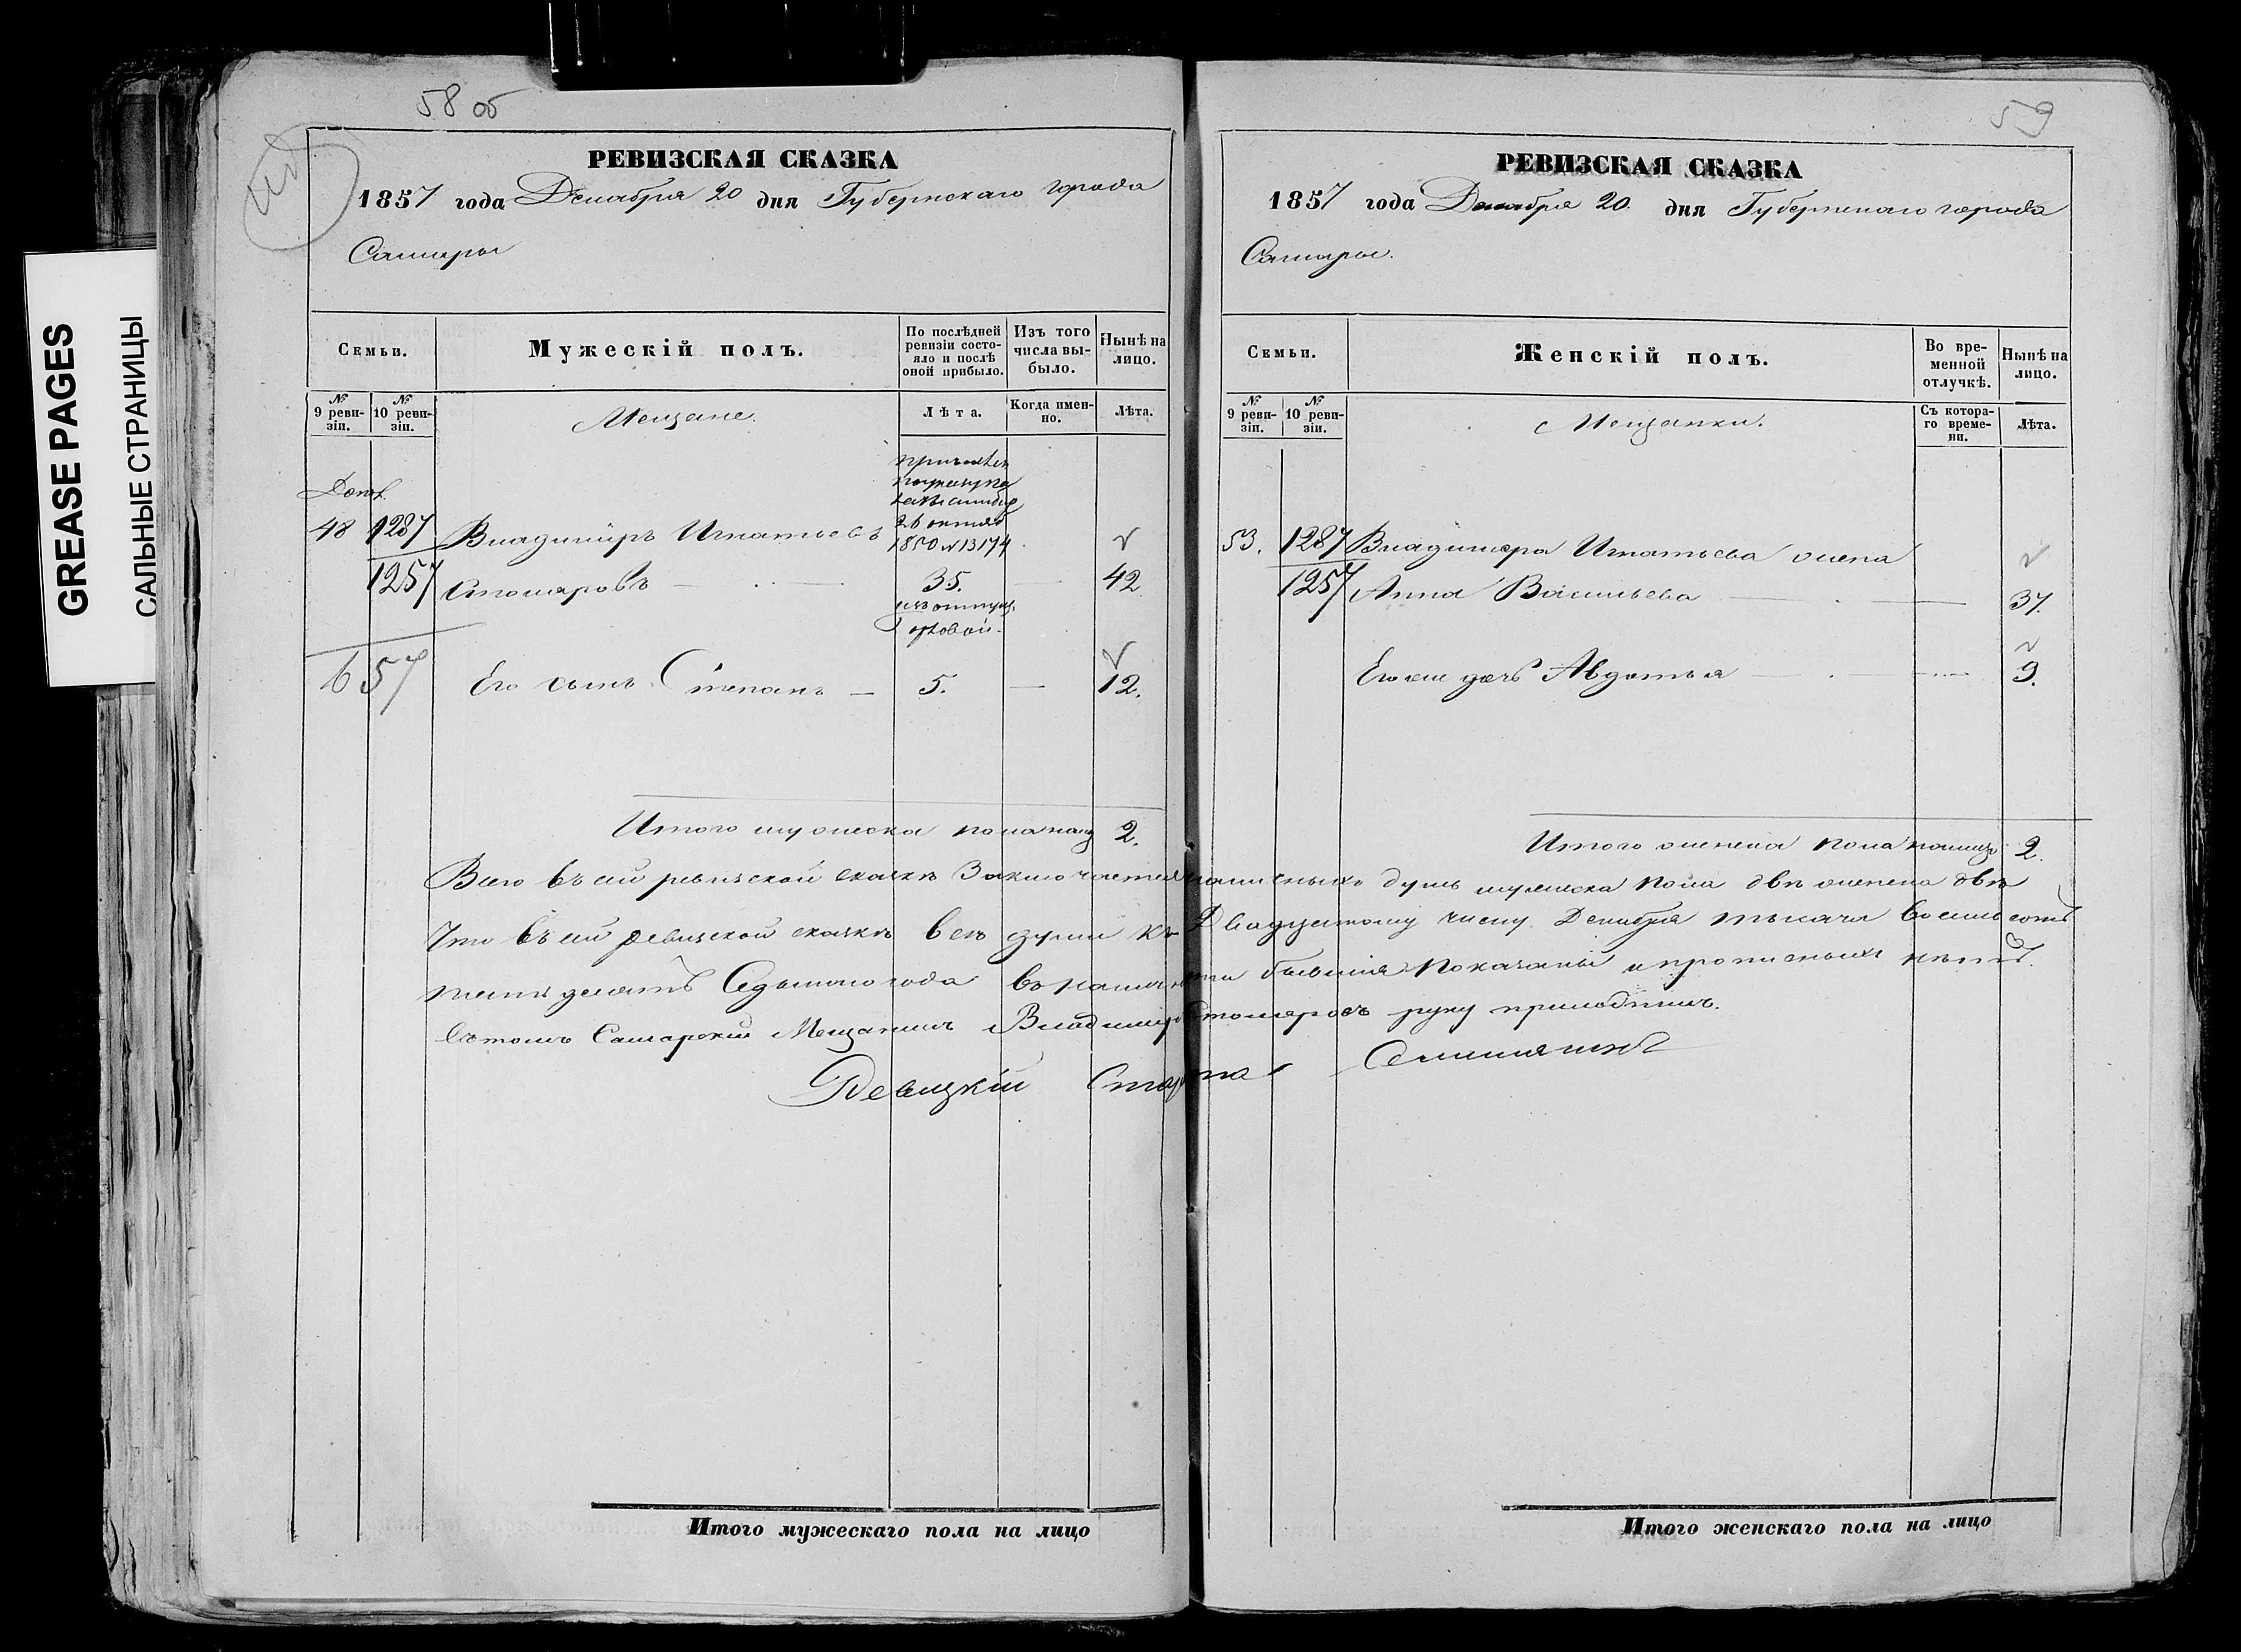 GREASE PAGES
САЛЬНЫЕ СТРАНИЦЫ
58 об
РЕВИЗСКАЯ СКАЗКА
1857 года Декабря 20 дня Губернскаго города
Самары
Семьи.
Мужескій полъ.
По послѣдней ревизіи состояло и послѣ оной прибыло.
Изъ того числа выбыло.
Нынѣ на лицо.
№ 9 ревизіи.
№ 10 ревизіи.
Мещане.
Лѣта.
Когда именно.
Лѣта.
26 октяб
48 1287 Владимиръ Игнатьевъ 1850 N 13174
1257 35. 42
Его сынъ Степанъ — 5. — 12.
657
Итого мужеска пола налиц 2.
59
РЕВИЗСКАЯ СКАЗКА
1857 года Декабря 20. дня Губернскаго города
Самары.
Семьи.
Женскій полъ.
Во временной отлучкѣ.
Нынѣ на лицо.
№ 9 ревизіи.
№ 10 ревизіи.
Мещанки.
Съ котораго времени.
Лѣта.
53. 1287 Владимера Игнатьева жена
1257 Анна Васильева 37.
Его же дочь Авдотья 9.
Итого женска пола налицо 2.
Всего въ сей ревизской сказкѣ Заключается наличныхъ душъ мужеска пола двѣ женска двѣ
Что въ сей ревизской сказкѣ все души къ Двадцатому числу Декабря тысяча восемьсотъ
пятьдесятъ Седьмого года въ наличности бывшия показаны и прописныхъ нѣтъ.
Въ томъ Самарский Мещанинъ Владимиръ руку приложилъ.
Ревизкій Староста
Итого мужескаго пола на лицо
Итого женскаго пола на лицо